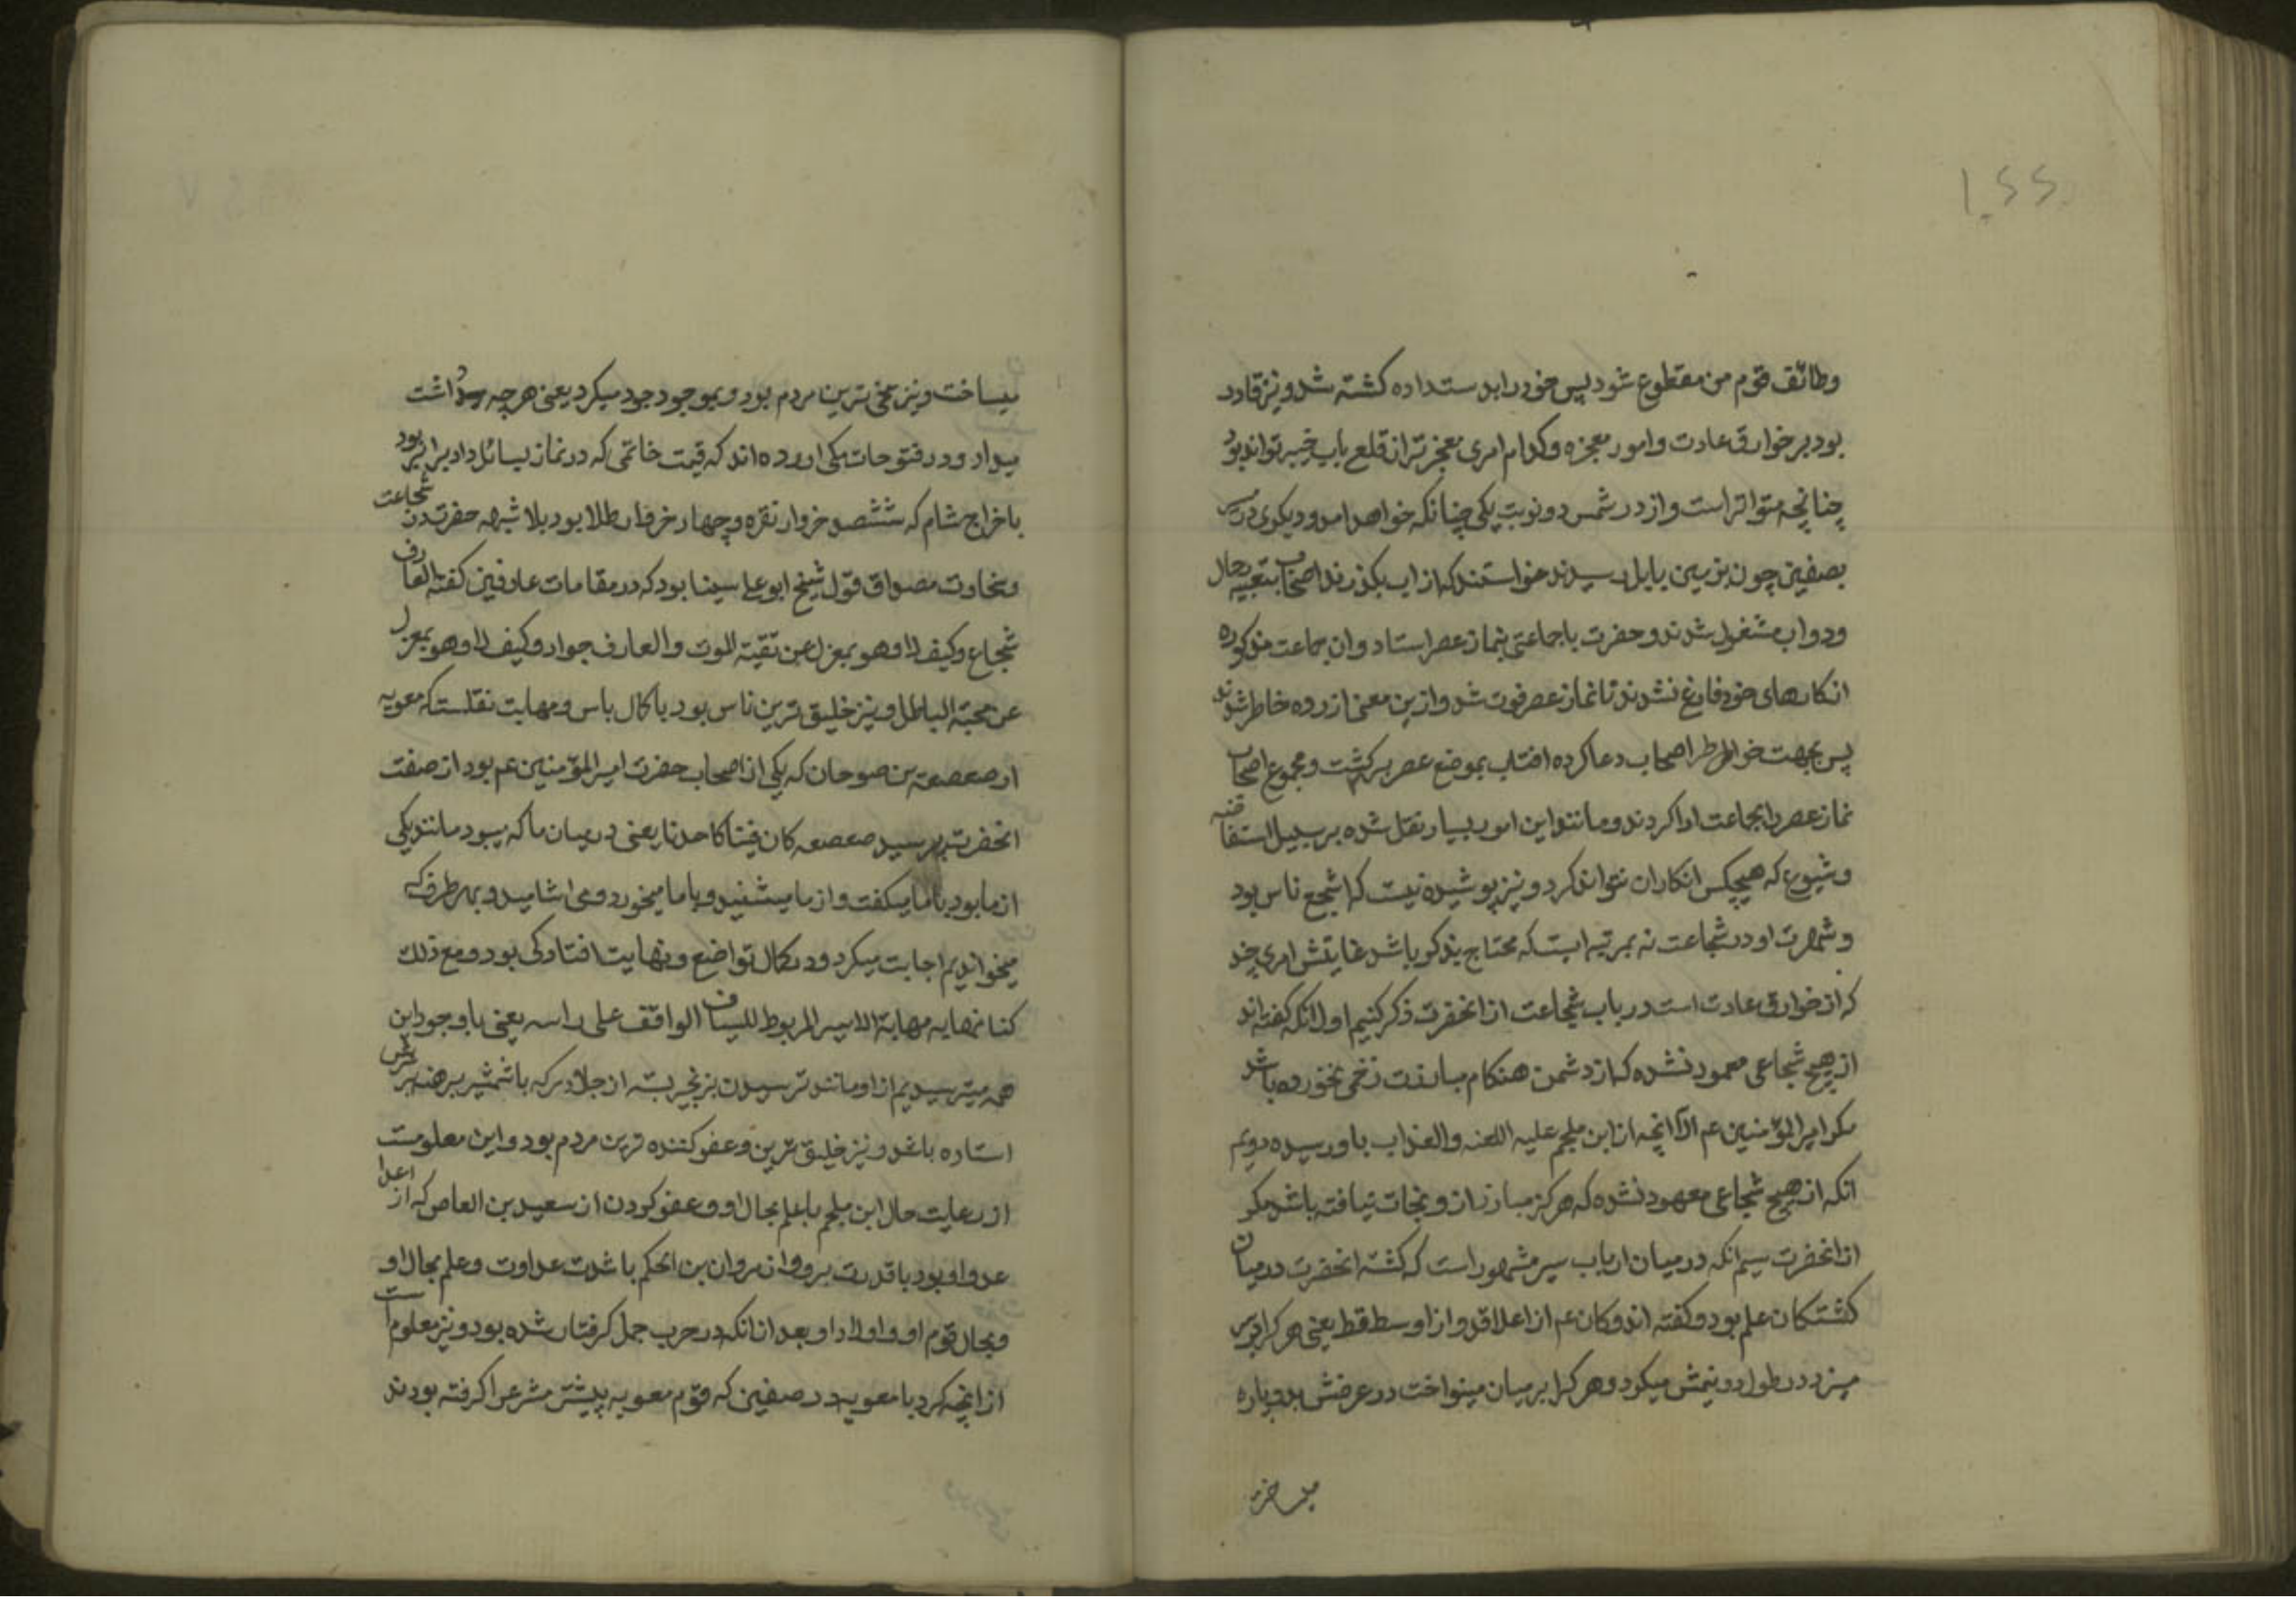 وظائف قوم من مقطوع شود پس خود را بدست داده کشته شد و نیز قادر
بود بر خوارق عادت و امور معجزه و کدام امری معجزتر از قلع باب خیبر تواند بود
چنانچه متواتر است و از در شمس دو نوبت یکی چنانکه خواهد امد و دیکری در
بصفین چون بزمین بابل رسیدند خواستند که از اب بکذرند اصحاب بتعبیه رحال
و دواب مشغول شدند و حضرت با جماعتی بنماز عصر استاد و ان جماعت مذکوره
از کارهای خود فارغ نشدند تا نماز عصر فوت شد و ازین معنی ازرده خاطر شدند
پس بجهت خواطر اصحاب دعا کرده افتاب بموضع عصر برکشت و مجموع اصحاب
نماز عصر را بجماعت ادا کردند و مانند این امور بسیار نقل شده بر سبیل استفاضه
و شیوع که هیچکس انکار ان نتواند کرد و نیز پوشیده نیست که اشجع ناس بود
و شهرت او در شجاعت نه بمرتبه ایست که محتاج بذکر باشد غایتش امری چند
که از خوارق عادت است در باب شجاعت از انحضرت ذکر کنیم اول انکه کفته اند
از هیچ شجاعی معهود نشده که از دشمن هنکام مبارزت زخمی نخورده باشد
مکر امیر المؤمنین عم الا انچه از ابن ملجم علیه اللعنه و العذاب باو رسیده دویم
انکه از هیچ شجاعی معهود نشده که هرکز مبارز از و نجات نیافته باشد مکر
از انحضرت سیم انکه در میان ارباب سیر مشهور است که کشته انحضرت در میان
کشتکان علم بود و کفته اند و کان عم اذا علا قد و اذا وسط قط یعنی هر کرا بر سر
میزد در طول دو نیمش میکرد و هر کرا بر میان مینواخت در عرضش بدو پاره
میساخت
میساخت و نیز سخی ترین مردم بود و بموجود جود میکرد یعنی هر چه داشت
میداد و در فتوحات مکی اورده اند که قیمت خاتمی که در نماز بسائل داد برابر بود
با خراج شام که ششصد خروار نقره و چهار خروار طلا بود بلا شبهه حضرت در شجاعت
و سخاوت مصداق قول شیخ ابو علی سینا بود که در مقامات عارفین کفته العارف
شجاع و کیف لا و هو بمعزل عن تقیة الموت و العارف جواد و کیف لا و هو بمعزل
عن محبة الباطل و نیز خلیق ترین ناس بود با کمال باس و مهابت نقلست که معویه
از صعصعه بن صوحان که یکی از اصحاب حضرت امیر المؤمنین عم بود از صفت
انحضرت پرسید صعصعه کان فینا کاحدنا یعنی در میان ما که میبود مانند یکی
از ما بود با ما میکفت و از ما میشنید و با ما میخورد و می اشامید و بهر طرف که
میخواندیم اجابت میکرد و در کمال تواضع و نهایت افتادکی بود و مع ذلک
کنا نهابه مهابة الاسیر المربوط للسیاف الواقف علی راسه یعنی با وجود این
همه میترسیدیم از او مانند ترسیدن بزنجیر بسته از جلادی که با شمشیر برهنه بر سرش
استاده باشد و نیز خلیق ترین و عفو کننده ترین مردم بود و این معلومست
از رعایت حال ابن ملجم با علم بحال او و عفو کردن از سعید بن العاص که از اعدا
عدو او بود با قدرت بر و و از مروان بن الحکم با شدت عداوت و علم بحال او
و بحال قوم او و اولاد او بعد از انکه در حرب جمل کرفتار شده بود و نیز معلوم است
از انچه کرد با معویه در صفین که قوم معویه پیشتر مشرعه را کرفته بودند